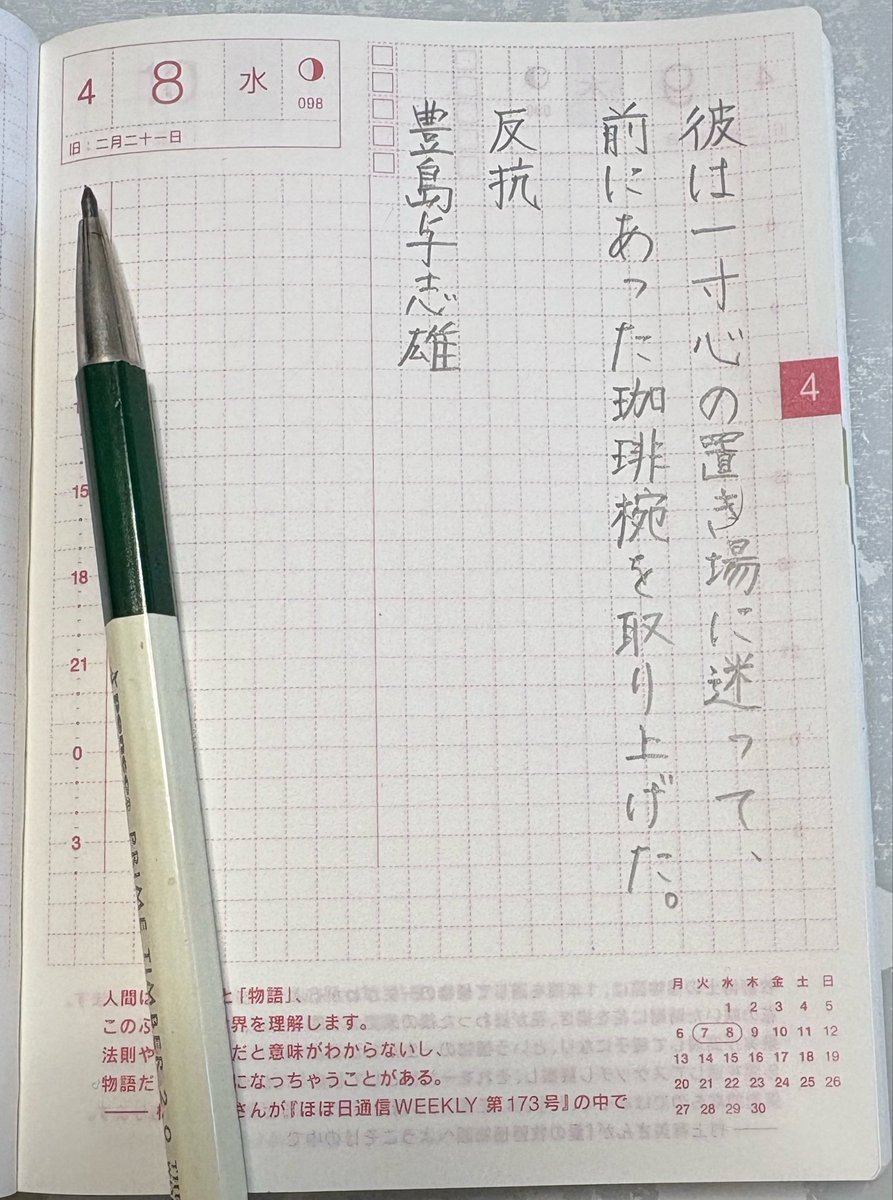 4 8 水
098
旧：二月二十一日
彼は一寸心の置き場に迷って、
前にあった珈琲椀を取り上げた。
反抗
豊島与志雄
4
15
18
21
0
3
人間は と「物語」、
このふ 界を理解します。
法則や だと意味がわからないし、
物語だ になっちゃうことがある。
さんが『ほぼ日通信WEEKLY 第173号』の中で
月 火 水 木 金 土 日
1 2 3 4 5
6 7 8 9 10 11 12
13 14 15 16 17 18 19
20 21 22 23 24 25 26
27 28 29 30
PRIME TIMBER 2.0